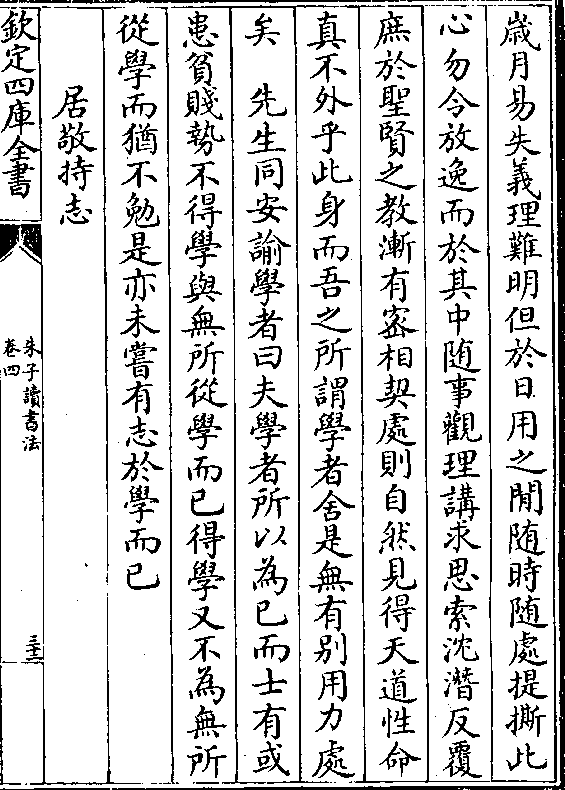 歳月易失義理難明但於日用之閒随時随處提撕此
心勿令放逸而於其中随事觀理講求思索沈潛反覆
庶於聖賢之教漸有密相契處則自然見得天道性命
真不外乎此身而吾之所謂學者舍是無有别用力處
矣　先生同安諭學者曰夫學者所以為已而士有或
患貧賤勢不得學與無所從學而已得學又不為無所
從學而猶不勉是亦未嘗有志於學而已
居敬持志
欽定四庫全書
朱子讀書法
卷四
三十二